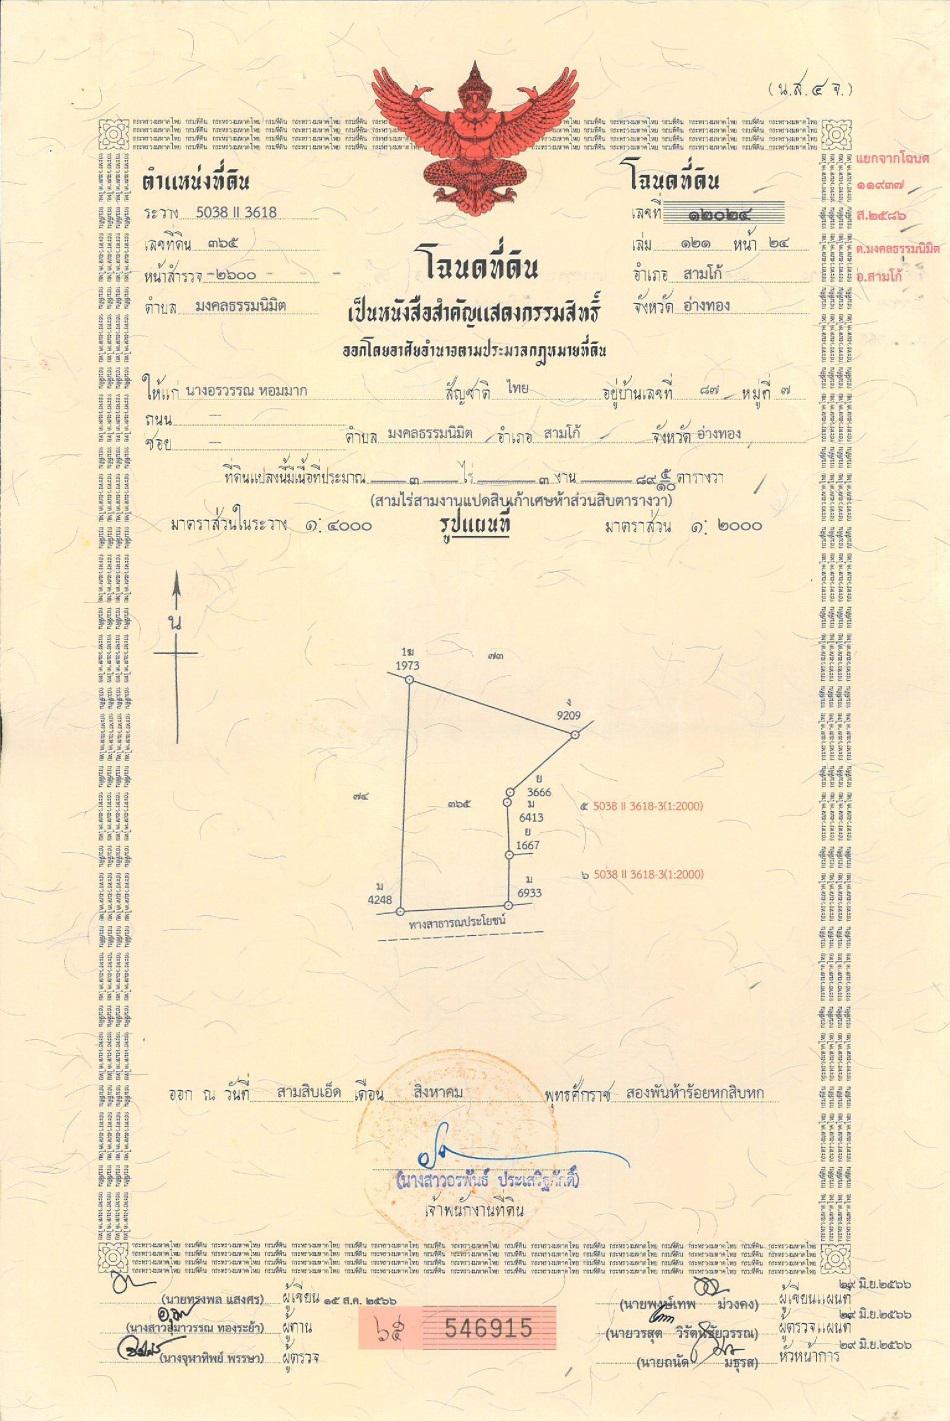 (น.ส.๔ จ.)
ตำแหน่งที่ดิน
ระวาง 5038 II 3618
เลขที่ดิน ๓๖๕
หน้าสำรวจ ๒๖๐๐
ตำบล มงคลธรรมนิมิต
โฉนดที่ดิน
เลขที่ ๑๒๐๒๔
เล่ม ๑๒๑ หน้า ๒๔
อำเภอ สามโก้
จังหวัด อ่างทอง
แยกจากโฉนด
๑๑๙๓๗
ส.๒๕๘๖
ต.มงคลธรรมนิมิต
อ.สามโก้
โฉนดที่ดิน
เป็นหนังสือสำคัญแสดงกรรมสิทธิ์
ออกโดยอาศัยอำนาจตามประมวลกฎหมายที่ดิน
ให้แก่ นางอรวรรณ หอมมาก สัญชาติ ไทย อยู่บ้านเลขที่ ๘๗ หมู่ที่ ๗
ถนน —
ซอย — ตำบล มงคลธรรมนิมิต อำเภอ สามโก้ จังหวัด อ่างทอง
ที่ดินแปลงนี้มีเนื้อที่ประมาณ ๓ ไร่ ๓ งาน ๘๙ ๕/๑๐ ตารางวา
(สามไร่สามงานแปดสิบเก้าเศษห้าส่วนสิบตารางวา)
มาตราส่วนในระวาง ๑: ๔๐๐๐ รูปแผนที่ มาตราส่วน ๑: ๒๐๐๐
น
1ฆ
1973
๗๓
ง
9209
๗๔
๓๖๕
ย
3666
ม
6413
๕ 5038 II 3618-3(1:2000)
ย
1667
๖ 5038 II 3618-3(1:2000)
ม
4248
ม
6933
ทางสาธารณประโยชน์
ออก ณ วันที่ สามสิบเอ็ด เดือน สิงหาคม พุทธศักราช สองพันห้าร้อยหกสิบหก
(นางสาวอรพันธ์ ประเสริฐศักดิ์)
เจ้าพนักงานที่ดิน
(นายทรงพล แสงศร) ผู้เขียน ๑๕ ส.ค. ๒๕๖๖
(นางสาวสุมาวรรณ ทองระย้า) ผู้ทาน
(นางจุฬาทิพย์ พรรษา) ผู้ตรวจ
๖๕ 546915
(นายพงษ์เทพ ม่วงคง) ผู้เขียนแผนที่ ๒๙ มิ.ย.๒๕๖๖
(นายวรสุต วิรัตน์ชัยวรรณ) ผู้ตรวจแผนที่ ๒๙ มิ.ย.๒๕๖๖
(นายถนัด มธุรส) หัวหน้าการ ๒๙ มิ.ย.๒๕๖๖